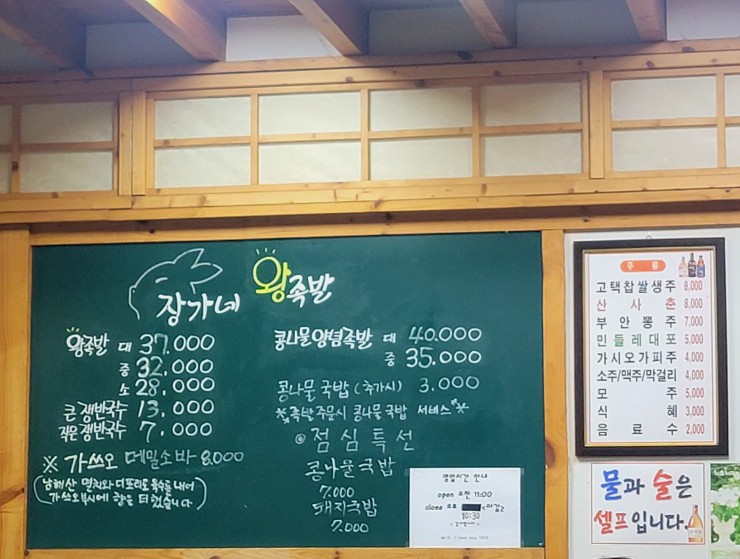 장가네 왕족발
왕족발 대 37.000
중 32.000
소 28.000
큰 쟁반국수 13.000
작은 쟁반국수 7.000
※ 가쓰오 메밀소바 8.000
남해산 멸치와 디포리로 육수를 내어
가쓰오부시에 향을 더 했습니다
콩나물양념족발 대 40.000
중 35.000
콩나물 국밥 (추가시) 3.000
※족발주문시 콩나물 국밥 서비스※
◎ 점심특선
콩나물국밥
7.000
돼지국밥
7.000
영업시간 안내
open 오전 11:00
close 오후
10:30
주류
고택찹쌀생주 8,000
산사춘 8,000
부안뽕주 7,000
민들레대포 5,000
가시오가피주 4,000
소주/맥주/막걸리 4,000
모주 5,000
식혜 3,000
음료수 2,000
물과 술은
셀프입니다.